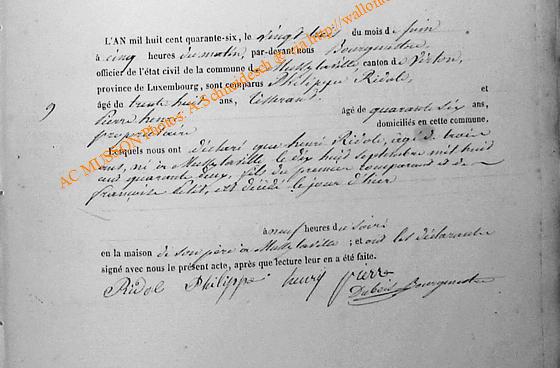 L'AN mil huit cent quarante-six, le vingt trois du mois de juin
à cinq heures du matin, par-devant nous Bourguemestre
officier de l'état civil de la commune de Mussy la ville canton de Virton,
province de Luxembourg, sont comparus Philippe Ridole,
âgé de trente huit ans, tisserand.
9
Pierre henry âgé de quarante six ans,
propriétaire domiciliés en cette commune,
Lesquels nous ont déclaré que henri Ridole, agé de trois
ans, né à Mussy la ville le dix huit septembre mil huit
cent quarante deux, fils du premier comparant et de
françoise petit, est décédé le jour d'hier
à neuf heures du soir
en la maison de son père à Mussy la ville; et ont les déclarants
signé avec nous le présent acte, après que lecture leur en a été faite.
Ridol Philippe henry pierre
Bourguemestre
AC MUSSON Photos: A.Schneidesch @ via http://wallonie